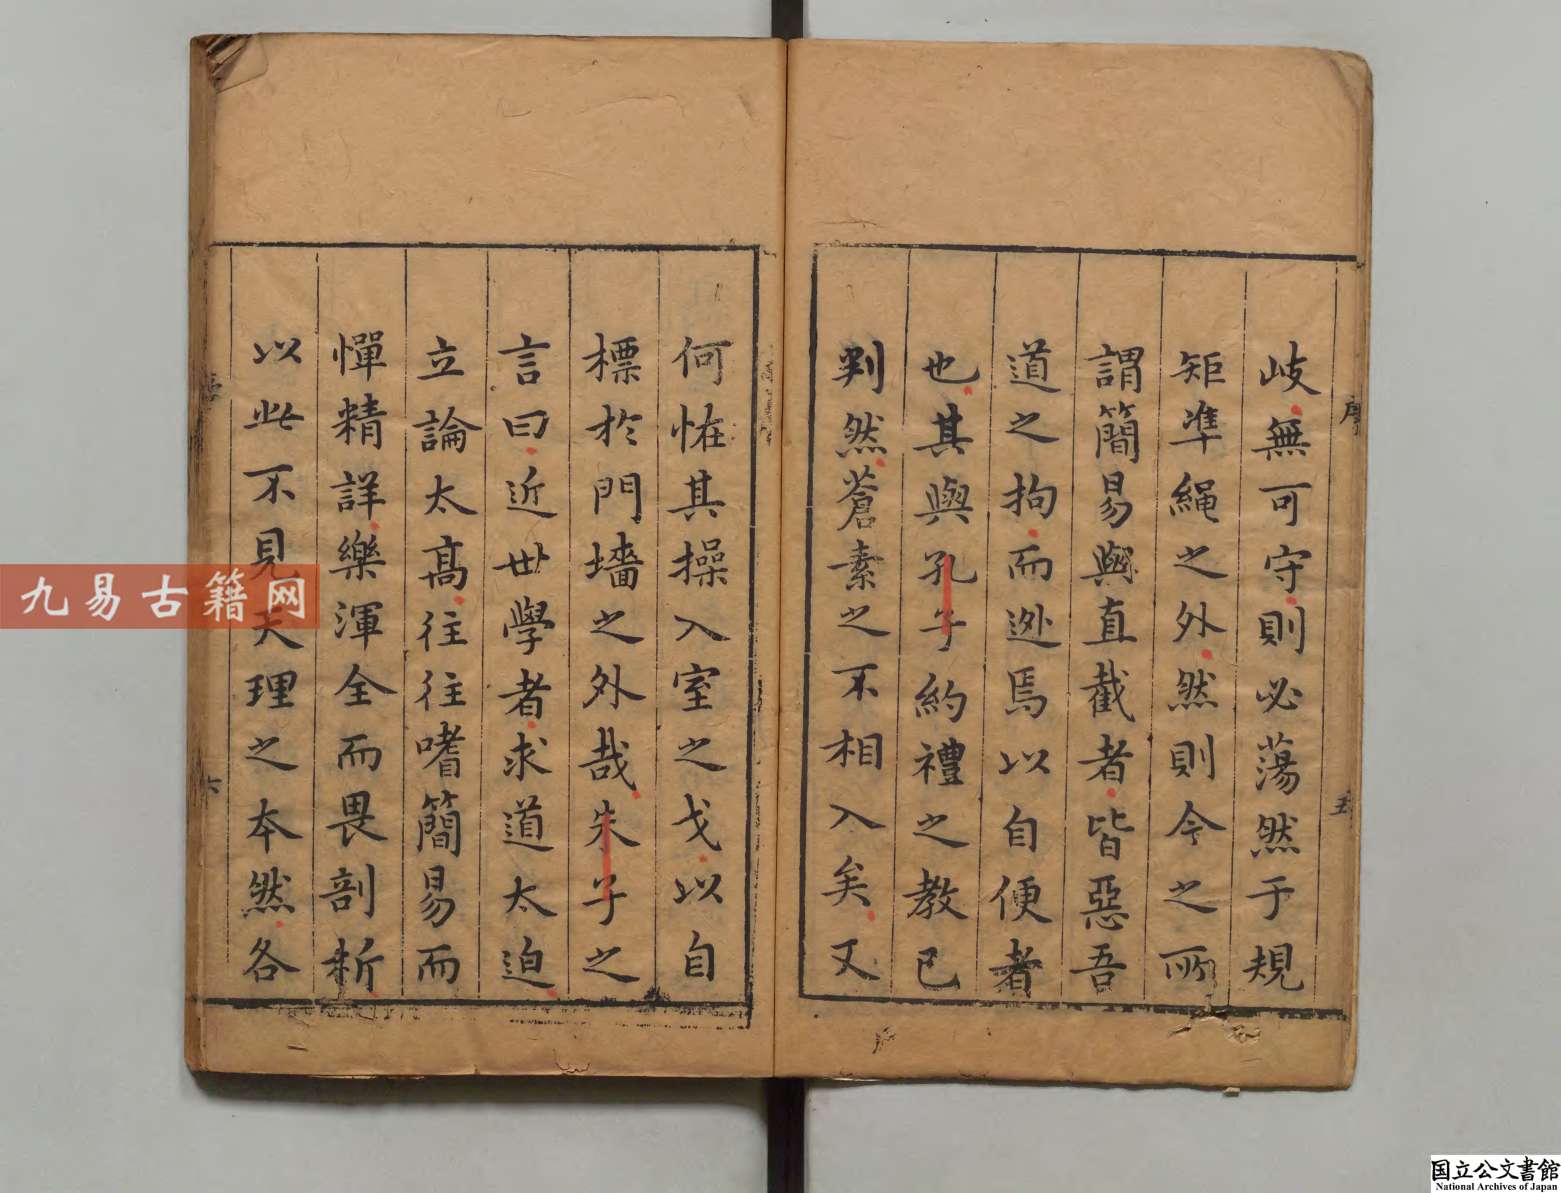 岐無可守則必蕩然于規
矩準繩之外然則今之所
謂簡易與直截者皆惡吾
道之拘而逊焉以自便者
也其與孔子約禮之教已
判然蒼素之不相入矣又
序
五
何恠其操入室之戈以自
標於門墻之外哉朱子之
言曰近世學者求道太迫
立論太高往往嗜簡易而
憚精詳樂渾全而畏剖析
以此不見天理之本然各
六
九易古籍网
国立公文書館
National Archives of Japan